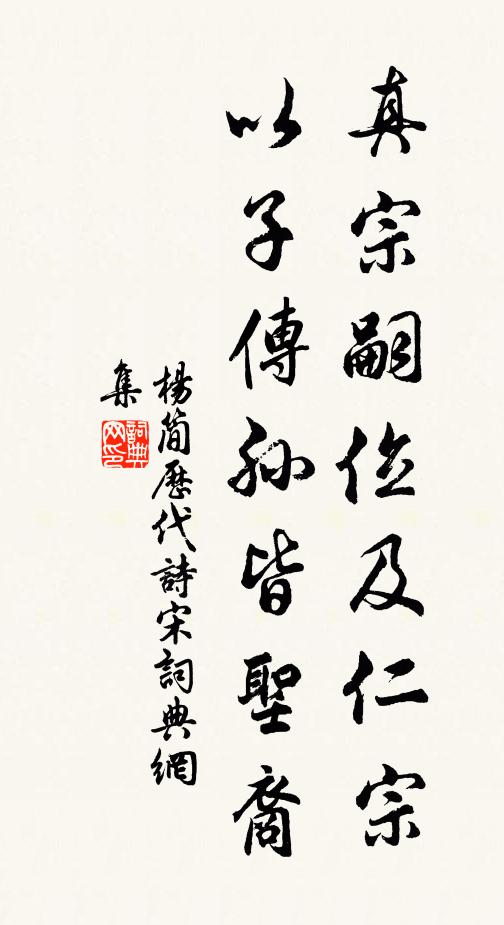 真宗嗣位及仁宗
以子傳孫皆聖裔
楊簡歷代詩宋詞典網
集
詞典网印